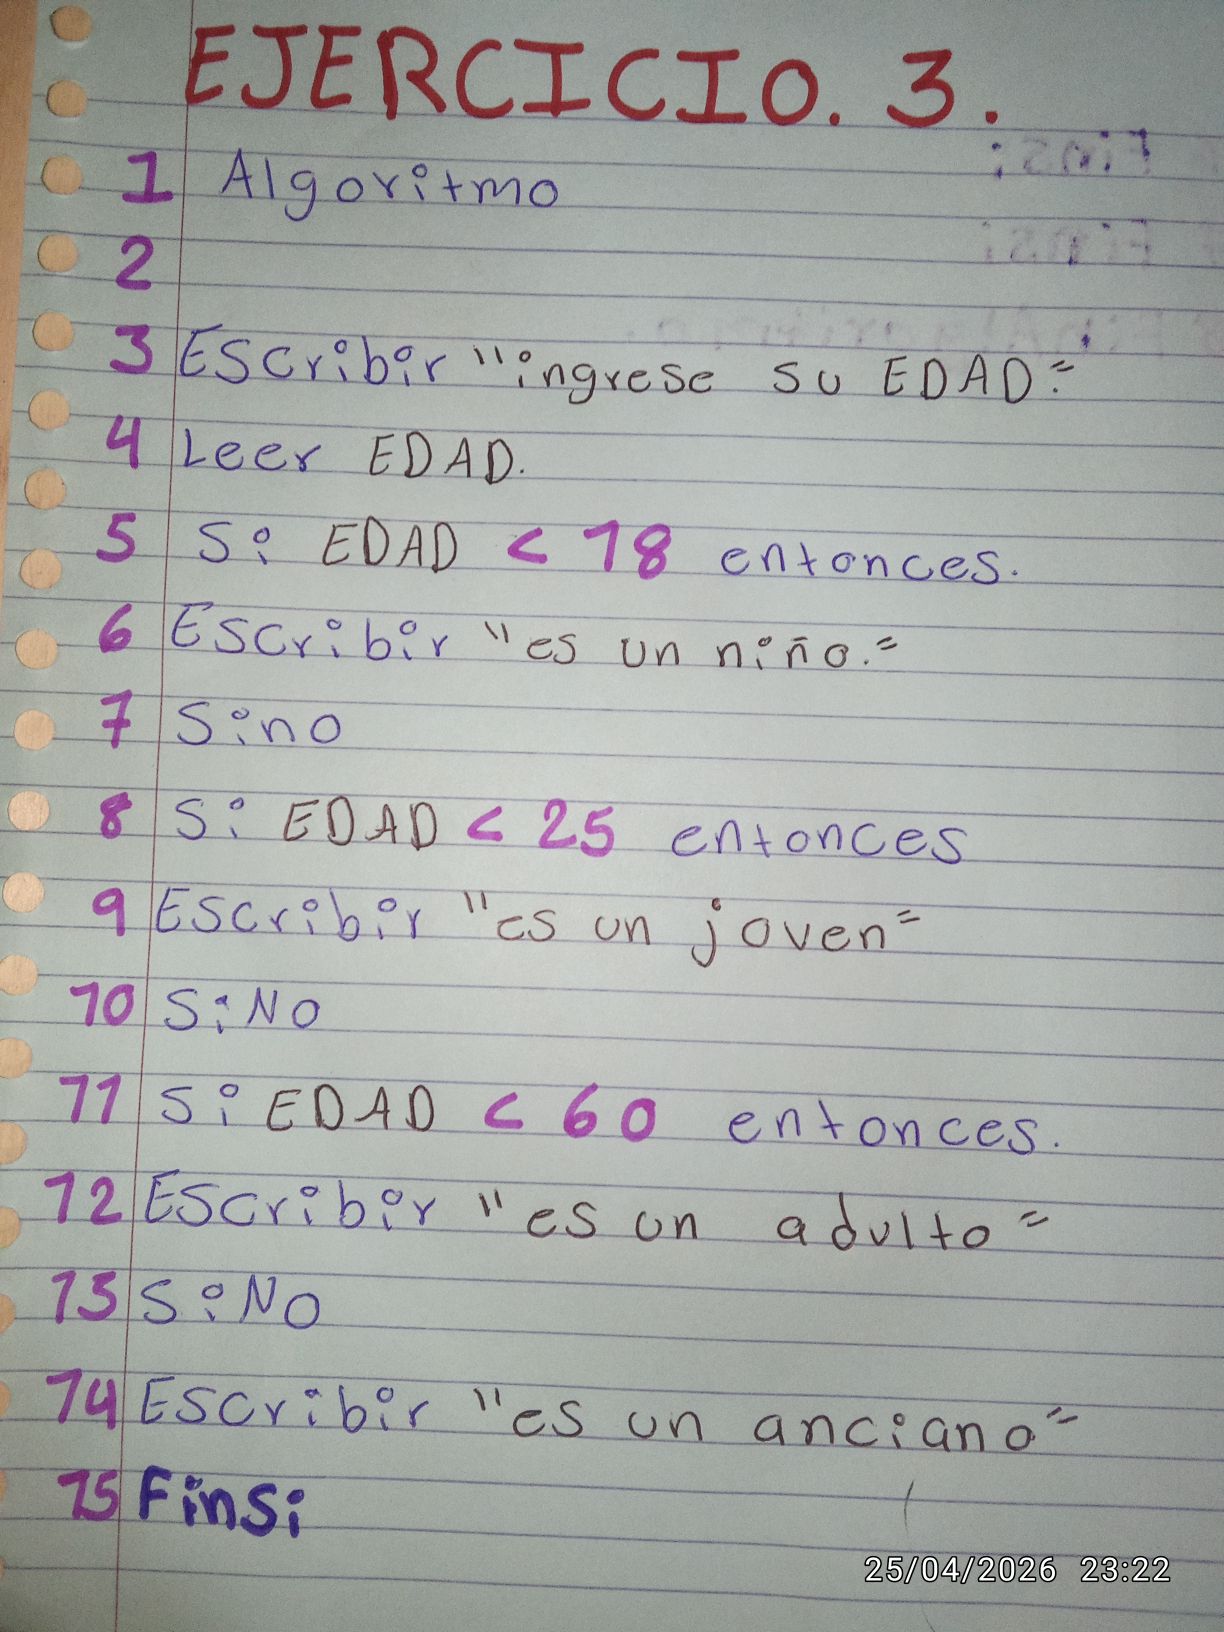 EJERCICIO. 3.
1 Algoritmo
2
3 Escribir "ingrese su EDAD:"
4 Leer EDAD.
5 Si EDAD < 18 entonces.
6 Escribir "es un niño."
7 Sino
8 Si EDAD < 25 entonces
9 Escribir "es un joven"
10 SiNo
11 Si EDAD < 60 entonces.
12 Escribir "es un adulto"
13 SiNo
14 Escribir "es un anciano"
15 Finsi
25/04/2026 23:22